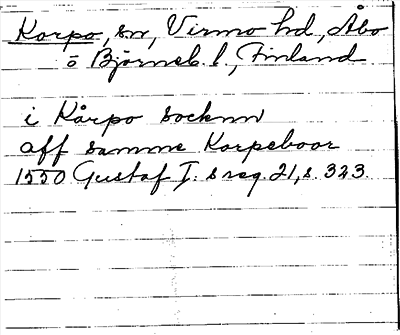 Korpo, sn, Virmo hd, Åbo
o Björneb. l., Finland
i Kårpo socknn
aff samme Korpeboor
1550 Gustaf I: s reg. 21, s. 323.